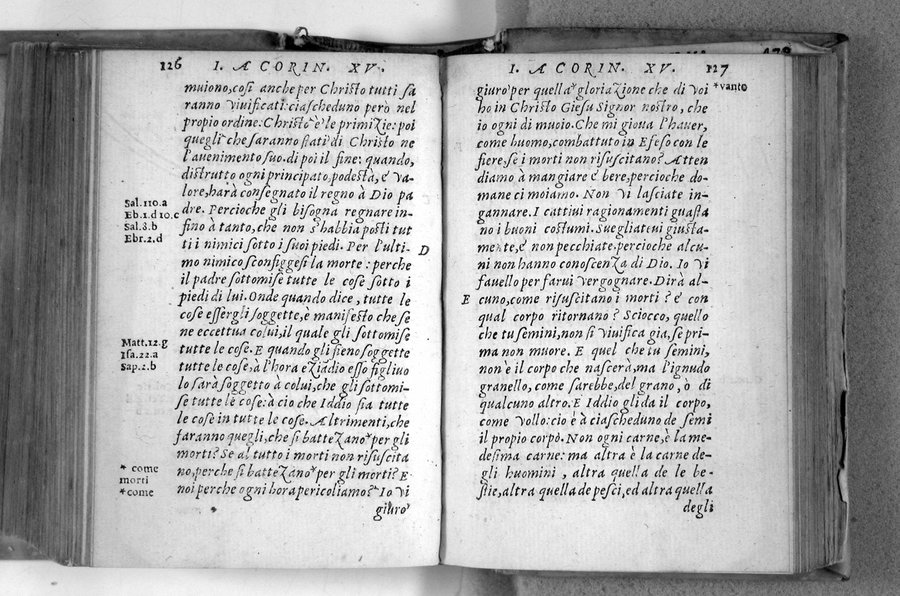 126 I. A CORIN. XV.
muiono, così anche per Christo tutti sa
ranno viuificati: ciascheduno però nel
proprio ordine: Christo è le primizie: poi
quegli che saranno stati di Christo ne
l'auenimento suo. di poi il fine: quando,
distrutto ogni principato, podestà, e va-
lore, harà consegnato il regno à Dio pa
dre. Percioche gli bisogna regnare in-
fino à tanto, che non s'habbia posti tut
ti i nimici sotto i suoi piedi. Per l'ulti-
mo nimico sconfiggesi la morte: perche
il padre sottomise tutte le cose sotto i
piedi di lui. Onde quando dice, tutte le
cose essergli soggette, è manifesto che se
ne eccettua colui, il quale gli sottomise
tutte le cose. E quando gli sieno soggette
tutte le cose, à l'hora eziadio esso figliuo
lo sarà soggetto à colui, che gli sottomi-
se tutte le cose: à cio che Iddio sia tutte
le cose in tutte le cose. Altrimenti, che
faranno quegli, che si battezano* per gli
morti? Se al tutto i morti non risuscita
no, perche si battezano* per gli morti? E
noi perche ogni hora pericoliamo? Io vi
giuro
Sal. 110.a
Eb. 1.d 10.c
Sal. 8.b
Ebr. 2.d
Matt. 12.g
Isa. 22.a
Sap. 2.b
* come
morti
* come
D
I. A CORIN. XV. 127
giuro per quella* gloriazione che di voi
ho in Christo Giesu Signor nostro, che
io ogni dì muoio. Che mi gioua l'hauer,
come huomo, combattuto in Efeso con le
fiere, se i morti non risuscitano? Atten
diamo à mangiare e bere, percioche do-
mane ci moiamo. Non vi lasciate in-
gannare. I cattiui ragionamenti guasta
no i buoni costumi. Suegliateui giusta-
mente, e non pecchiate. percioche alcu-
ni non hanno conoscenza di Dio. Io vi
fauello per farui vergognare. Dirà al-
cuno, come risuscitano i morti? e con
qual corpo ritornano? Sciocco, quello
che tu semini, non si viuifica gia, se pri-
ma non muore. E quel che tu semini,
non è il corpo che nascerà, ma l'ignudo
granello, come sarebbe, del grano, ò di
qualcuno altro. E Iddio gli da il corpo,
come vollo: cio è à ciascheduno de semi
il proprio corpo. Non ogni carne, è la me-
desima carne: ma altra è la carne de-
gli huomini, altra quella de le be-
stie, altra quella de pesci, ed altra quella
degli
*vanto
E